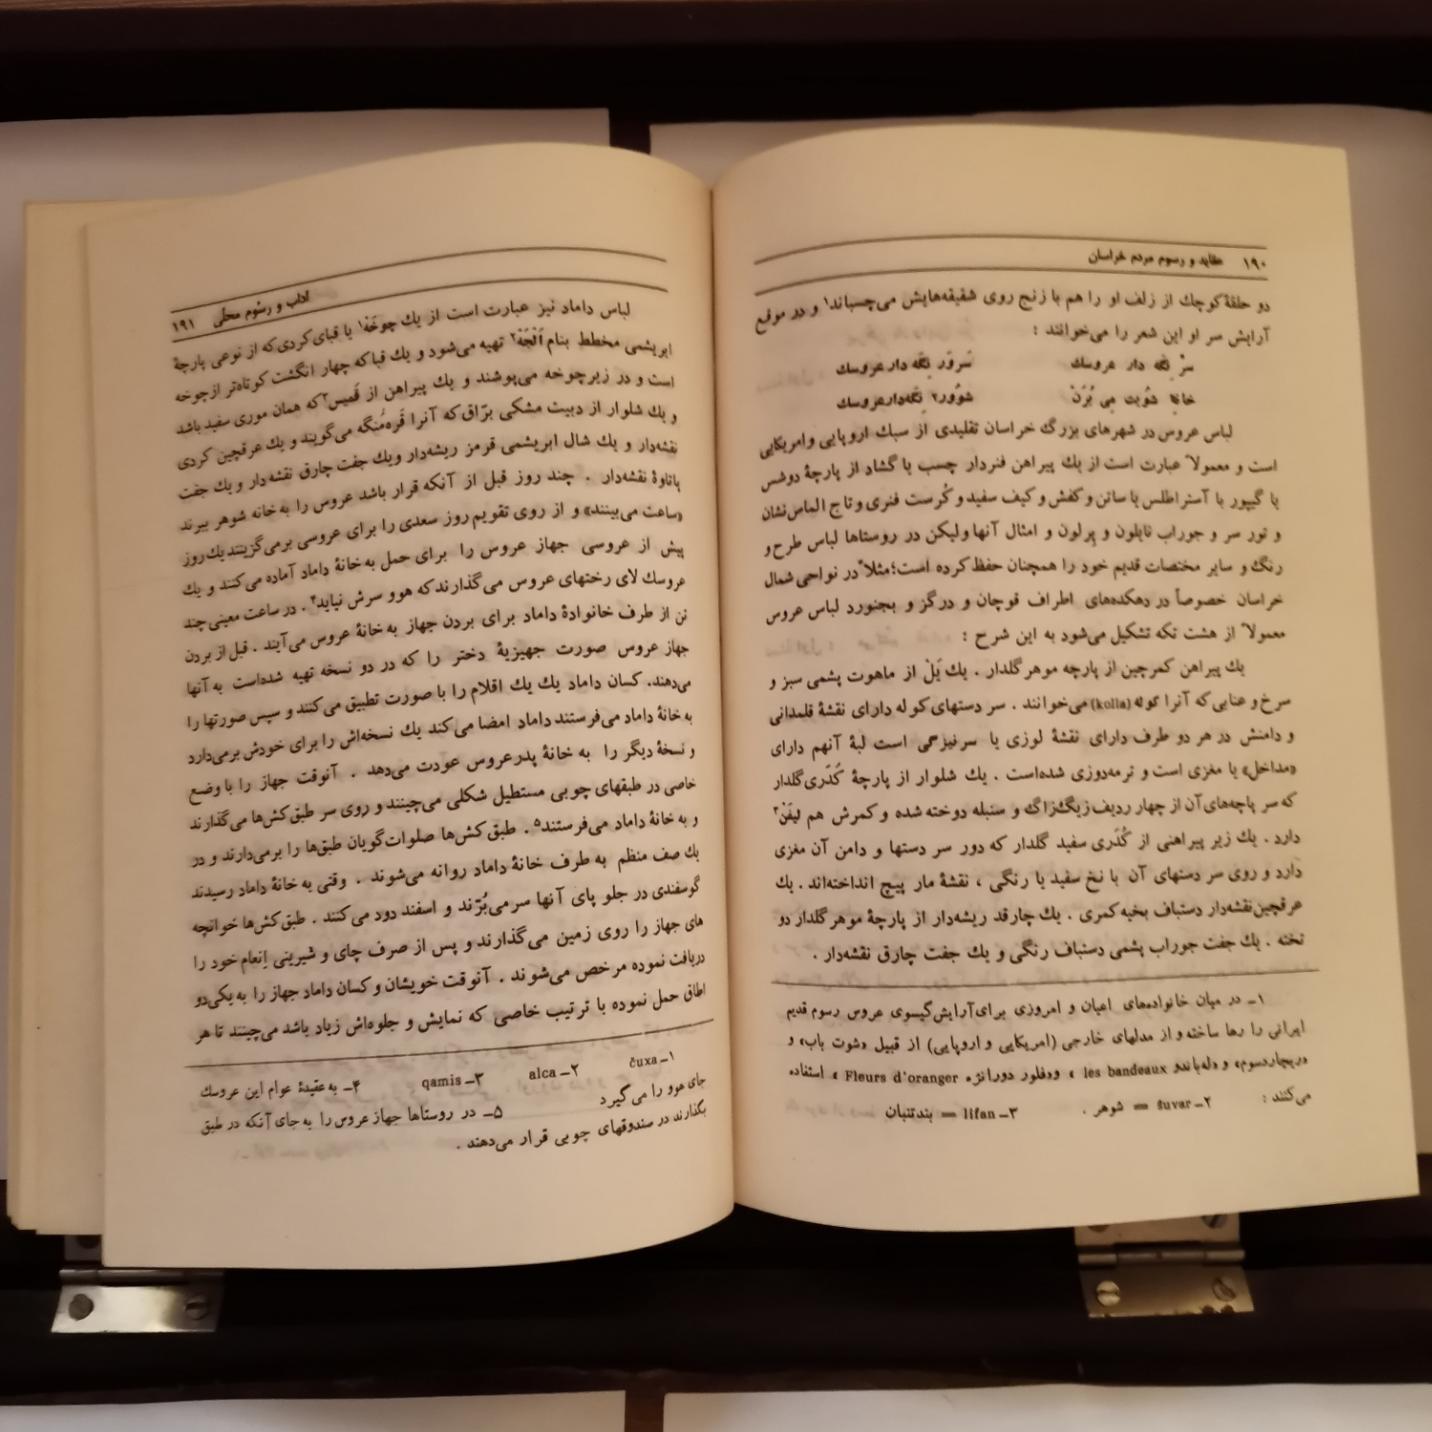 ۱۹۰ عقاید و رسوم مردم خراسان
دو حلقهٔ کوچك از زلف او را هم با زنج روی شقیقه‌هایش می‌چسباند۱ و در موقع
آرایش سر او این شعر را می‌خوانند :
سرْ نِگه دار عروسك سَروَر نِگه دار عروسك
خانِهٔ شوُیت مِی بُرَنْ شوُور۲ نِگه‌دار عروسك
لباس عروس در شهرهای بزرگ خراسان تقلیدی از سبك اروپایی و امریکایی
است و معمولاً عبارت است از یك پیراهن فنردار چسب یا گشاد از پارچهٔ دوشس
یا گیپور با آستر اطلس یا ساتن و کفش و کیف سفید و کُرست فنری و تاج الماس‌نشان
و تور سر و جوراب نایلون و پرلون و امثال آنها ولیکن در روستاها لباس طرح و
رنگ و سایر مختصات قدیم خود را همچنان حفظ کرده است؛ مثلاً در نواحی شمال
خراسان خصوصاً در دهکده‌های اطراف قوچان و درگز و بجنورد لباس عروس
معمولاً از هشت تکه تشکیل می‌شود به این شرح :
یك پیراهن کمرچین از پارچه موهر گلدار . یك یَلْ از ماهوت پشمی سبز و
سرخ و عنابی که آنرا کوله (kolla) می‌خوانند . سر دستهای کوله دارای نقشهٔ قلمدانی
و دامنش در هر دو طرف دارای نقشهٔ لوزی یا سرنیزگی است لبهٔ آنهم دارای
«مداخل» یا مغزی است و ترمه‌دوزی شده‌است . یك شلوار از پارچهٔ کُدَری گلدار
که سر پاچه‌های آن از چهار ردیف زیگ‌زاگ و سنبله دوخته شده و کمرش هم لیفَنْ۳
دارد . یك زیر پیراهنی از کُدَری سفید گلدار که دور سر دستها و دامن آن مغزی
دارد و روی سر دستهای آن با نخ سفید یا رنگی ، نقشهٔ مار پیچ انداخته‌اند . یك
عرقچین نقشه‌دار دستباف بخیه کمری . یك چارقد ریشه‌دار از پارچهٔ موهر گلدار دو
تخته . یك جفت جوراب پشمی دستباف رنگی و یك جفت چارق نقشه‌دار .
۱ـ در میان خانواده‌های اعیان و امروزی برای آرایش گیسوی عروس رسوم قدیم
ایرانی را رها ساخته و از مدلهای خارجی (امریکایی و اروپایی) از قبیل «شوت باب» و
«ریچاردسوم» و «له‌باندو les bandeaux » و «فلور دورانژ» Fleurs d'oranger » استفاده
می‌کنند :
۲ـ šuvar = شوهر . ۳ـ lifan = بندتنبان
آداب و رسوم محلی ۱۹۱
لباس داماد نیز عبارت است از یك چوخَهْ۱ یا قبای کردی که از نوعی پارچهٔ
ابریشمی مخطط بنام اَلْجَهْ۲ تهیه می‌شود و یك قبا که چهار انگشت کوتاه‌تر از چوخه
است و در زیر چوخه می‌پوشند و یك پیراهن از قَمیس۳ که همان موری سفید باشد
و یك شلوار از دبیت مشکی برّاق که آنرا قَره‌مُنگه می‌گویند و یك عرقچین کردی
نقشه‌دار و یك شال ابریشمی قرمز ریشه‌دار و یك جفت چارق نقشه‌دار و یك جفت
پاتاوهٔ نقشه‌دار . چند روز قبل از آنکه قرار باشد عروس را به خانه شوهر ببرند
«ساعت می‌بینند» و از روی تقویم روز سعدی را برای عروسی برمی‌گزینند یك روز
پیش از عروسی جهاز عروس را برای حمل به خانهٔ داماد آماده می‌کنند و یك
عروسك لای رختهای عروس می‌گذارند که هوو سرش نیاید۴ . در ساعت معینی چند
تن از طرف خانوادهٔ داماد برای بردن جهاز به خانهٔ عروس می‌آیند . قبل از بردن
جهاز عروس صورت جهیزیهٔ دختر را که در دو نسخه تهیه شده‌است به آنها
می‌دهند. کسان داماد یك یك اقلام را با صورت تطبیق می‌کنند و سپس صورتها را
به خانهٔ داماد می‌فرستند داماد امضا می‌کند یك نسخه‌اش را برای خودش برمی‌دارد
و نسخهٔ دیگر را به خانهٔ پدر عروس عودت می‌دهد . آنوقت جهاز را با وضع
خاصی در طبقهای چوبی مستطیل شکلی می‌چینند و روی سر طبق‌کش‌ها می‌گذارند
و به خانهٔ داماد می‌فرستند۵ . طبق‌کش‌ها صلوات‌گویان طبق‌ها را برمی‌دارند و در
یك صف منظم به طرف خانهٔ داماد روانه می‌شوند . وقتی به خانهٔ داماد رسیدند
گوسفندی در جلو پای آنها سر می‌بُرّند و اسفند دود می‌کنند . طبق‌کش‌ها خوانچه
های جهاز را روی زمین می‌گذارند و پس از صرف چای و شیرینی اِنعام خود را
دریافت نموده مرخص می‌شوند . آنوقت خویشان و کسان داماد جهاز را به یکی دو
اطاق حمل نموده با ترتیب خاصی که نمایش و جلوه‌اش زیاد باشد می‌چینند تا هر
۱ـ čuxa ۲ـ alca ۳ـ qamis ۴ـ به عقیدهٔ عوام این عروسك
جای هوو را می‌گیرد ۵ـ در روستاها جهاز عروس را به جای آنکه در طبق
بگذارند در صندوقهای چوبی قرار می‌دهند .